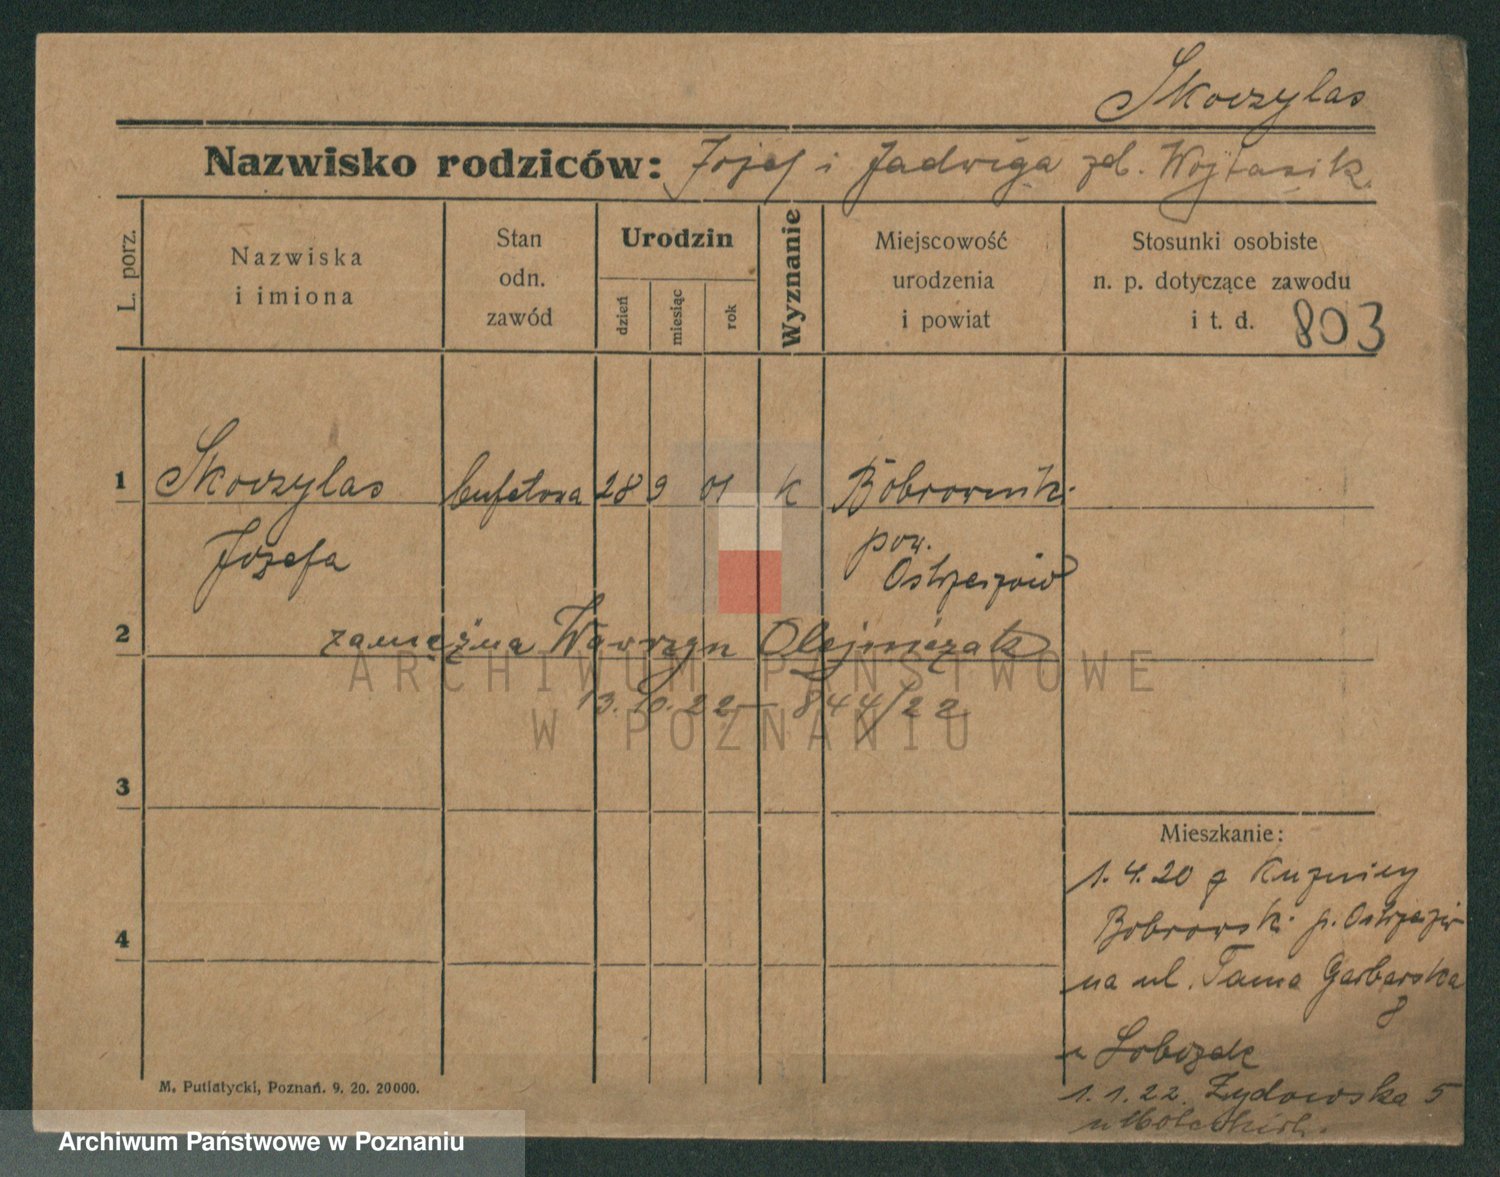 Skoczylas
Nazwisko rodziców: Józef i Jadwiga zd. Wojtasik
L. porz.
Nazwiska
i imiona
Stan
odn.
zawód
Urodzin
dzień
miesiąc
rok
Wyznanie
Miejscowość
urodzenia
i powiat
Stosunki osobiste
n. p. dotyczące zawodu
i t. d. 803
1 Skoczylas bufetowa 28 9 01 k Bobrowniki
Józefa pow.
Ostrzeszów
2 zamężna Wawrzyn Olejniczak
13.10.22 — 844/22
3
Mieszkanie:
1.4.20 z Kuźnicy
4 Bobrowski p. Ostrzeszów
na ul. Tama Garbarska
8
u
1.1.22. Żydowska 5
u
M. Putiatycki, Poznań. 9. 20. 20000.
ARCHIWUM PAŃSTWOWE
W POZNANIU
Archiwum Państwowe w Poznaniu